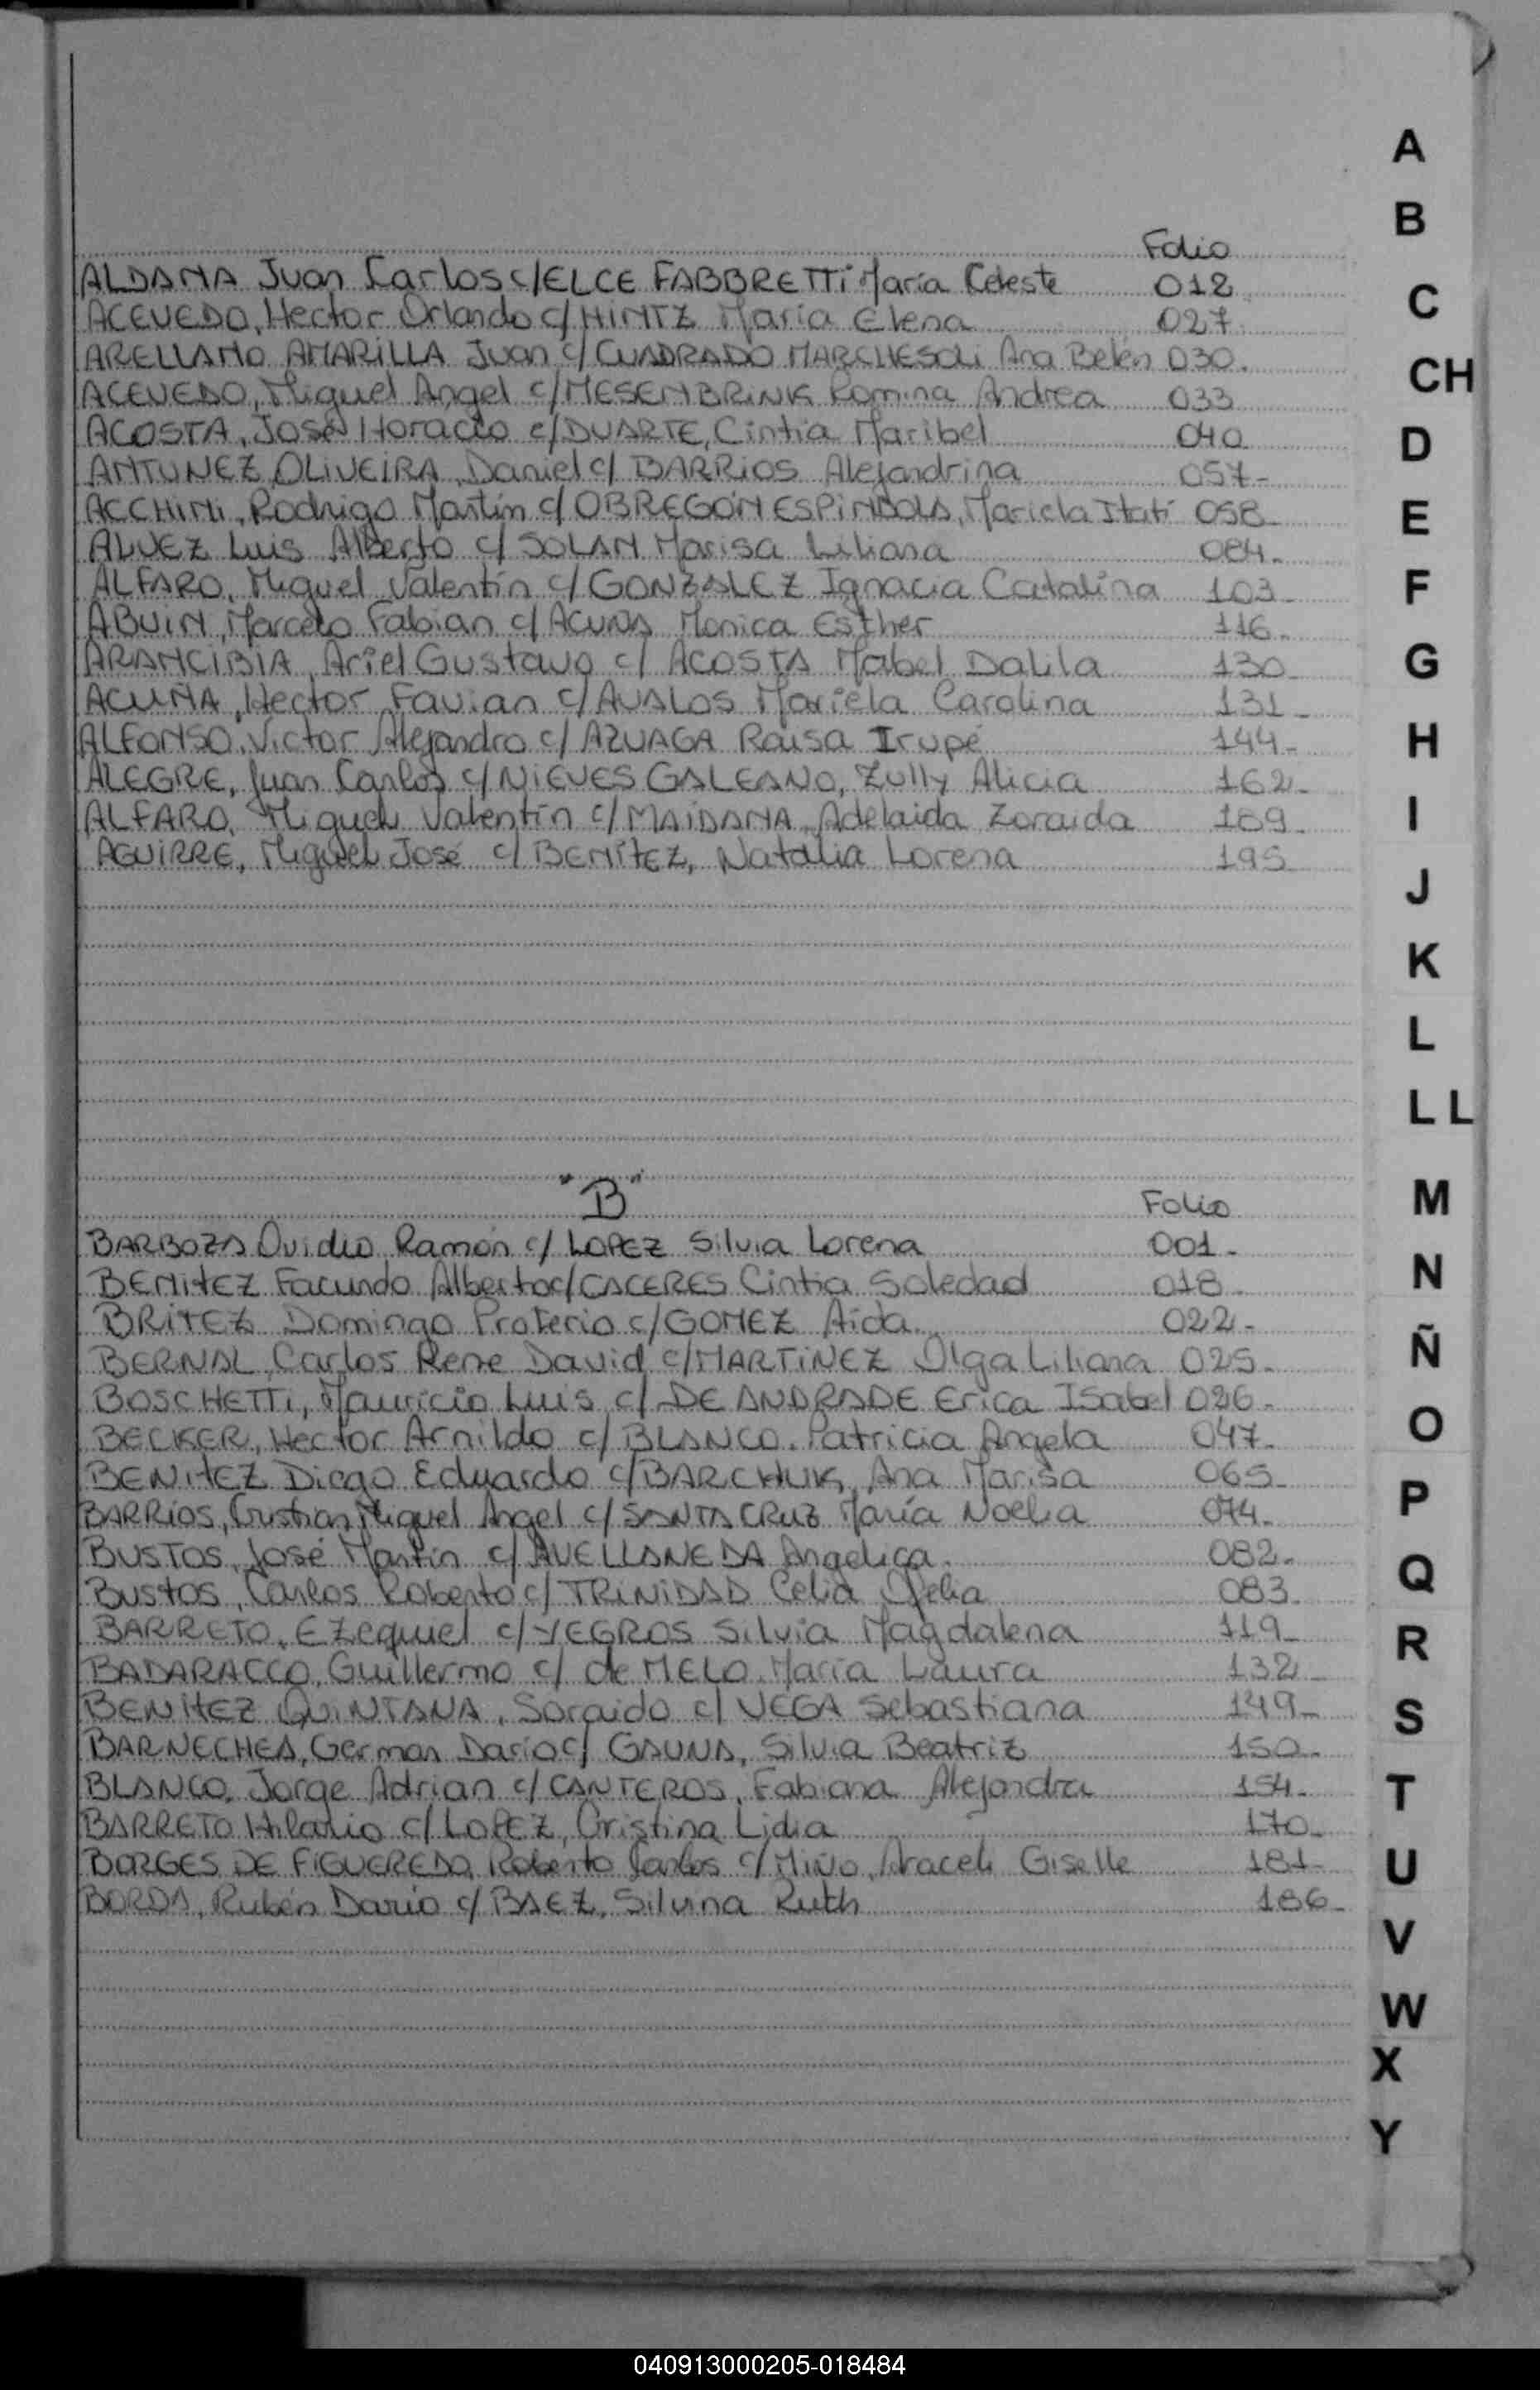 Folio
ALDANA Juan Carlos c/ELCE FABBRETTi María Celeste 012
ACEVEDO, Hector Orlando c/ HINTZ María Elena 027
ARELLANO AMARiLLA Juan c/ CUADRADO MARCHESOLi Ana Belén 030.
ACEVEDO, Miguel Angel c/ MESEMBRiNK Romina Andrea 033
ACOSTA, José Horacio c/ DUARTE, Cintia Maribel 040
ANTUNEZ OLiVEiRA, Daniel c/ BARRiOS Alejandrina 057-
ACCHiNi, Rodrigo Martín c/ OBREGÓN ESPiNDOLA, Mariela Itatí 058
ALVEZ Luis Alberto c/ SOLAN Marisa Liliana 084.
ALFARO, Miguel Valentín c/ GONZALEZ Ignacia Catalina 103
ABUiN, Marcelo Fabian c/ ACUÑA Monica Esther 116.
ARANCiBiA, Ariel Gustavo c/ ACOSTA Mabel Dalila 130
ACUÑA, Hector Favian c/ AVALOS Mariela Carolina 131
ALFONSO, Victor Alejandro c/ AZUAGA Raisa Irupé 144-
ALEGRE, Juan Carlos c/ NiEVES GALEANO, Zully Alicia 162-
ALFARO, Miguel Valentín c/ MAiDANA, Adelaida Zoraida 189.
AGUiRRE, Miguel José c/ BENÍTEZ, Natalia Lorena 195
"B"
Folio
BARBOZA Ovidio Ramón c/ LOPEZ Silvia Lorena 001-
BENiTEZ Facundo Alberto c/ CACERES Cintia Soledad 018
BRiTEZ Domingo Proterio c/ GOMEZ Aida 022-
BERNAL, Carlos Rene David c/ MARTiNEZ Olga Liliana 025.
BOSCHETTi, Mauricio Luis c/ DE ANDRADE Erica Isabel 026.
BECKER, Hector Arnildo c/ BLANCO, Patricia Angela 047.
BENiTEZ Diego Eduardo c/ BARCHUK, Ana Marisa 065
BARRiOS, Cristian Miguel Angel c/ SANTA CRUZ María Noelia 074.
BUSTOS, José Martín c/ AVELLANEDA Angelica. 082.
BUSTOS, Carlos Roberto c/ TRiNiDAD Celia Ofelia 083
BARRETO, Ezequiel c/ YEGROS Silvia Magdalena 119
BADARACCO, Guillermo c/ de MELO, María Laura 132
BENíTEZ QUiNTANA, Soraido c/ VEGA Sebastiana 149
BARNECHEA, German Dario c/ GAUNA, Silvia Beatriz 150.
BLANCO, Jorge Adrian c/ CANTEROS, Fabiana Alejandra 154.
BARRETO Hilario c/ LOPEZ, Cristina Lidia 170
BORGES DE FiGUEREDO, Roberto Carlos c/ MiÑO, Araceli Giselle 181-
BORDA, Rubén Darío c/ BAEZ, Silvina Ruth 186
A
B
C
CH
D
E
F
G
H
I
J
K
L
LL
M
N
Ñ
O
P
Q
R
S
T
U
V
W
X
Y
040913000205-018484